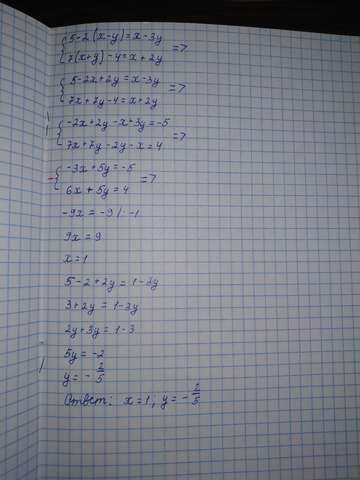 { 5-2(x-y)=x-3y
{ 7(x+y)-4=x+2y =>
{ 5-2x+2y=x-3y
{ 7x+7y-4=x+2y =>
{ -2x+2y-x+3y=-5
{ 7x+7y-2y-x=4 =>
- { -3x+5y=-5
{ 6x+5y=4 =>
-9x=-9 |·-1
9x=9
x=1
5-2+2y=1-3y
3+2y=1-3y
2y+3y=1-3
5y=-2
y=-2/5
Ответ: x=1, y=-2/5